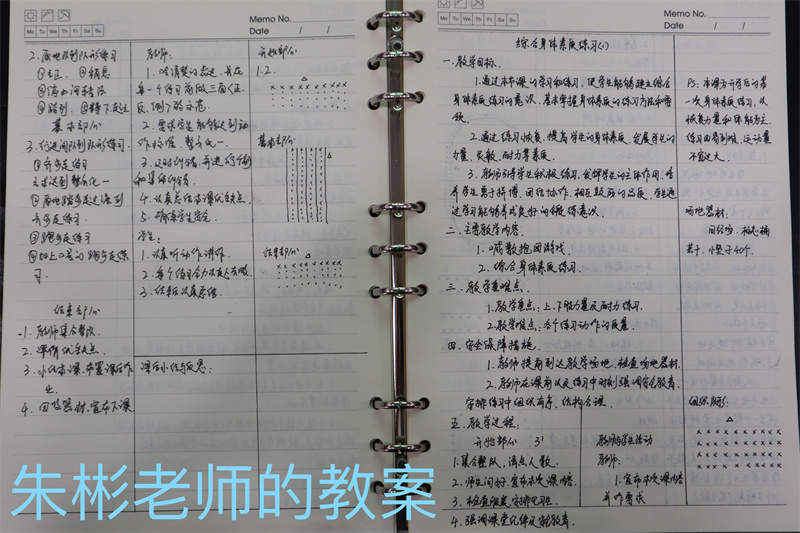 Memo No.
Date / /
Mo Tu We Th Fr Sa Su
2. 原地队列队形练习
①立正、②稍息
③停止间转法
④踏到
基本部分
3. 行进间队列队形练习.
①齐步走练习
要求达到整齐化一
②原地踏步走过渡到
齐步走练习.
③跑步走练习
④加上口署的跑步走练
习.
结束部分
1. 教师集合整队.
2. 讲评优缺点.
3. 小结本课,布置课后作
业.
4. 回收器材,宣布下课.
教师:
每一个练习前做
反、侧
2. 要求学生能够达到动
作标准,整齐化一.
3. 及时纠错,并进行个别
和集体纠错.
4. 认真总结本课优缺点.
5. 确保学生安全
学生:
1. 认真听动作讲解.
2. 每个练习全力以赴去做
3. 结束认真总结.
课后小结与反思:
开始部分
1.2.
基本部分
结束部分
Memo No.
Date / /
Mo Tu We Th Fr Sa Su
综合身体素质练习(1)
一. 教学目标.
1. 通过本节课的学习和练习,使学生能够建立综合
身体素质练习的意识、基本掌握身体素质的练习方法和要
领.
2. 通过练习恢复、提高学生的身体素质,发展学生的
力量、灵敏、耐力等素质.
3. 教师引导学生积极练习,发挥学生的主体作用,培
养学生勇于拼搏、团结协作、相互鼓励的品质,学生通
过学习能够养成良好的锻炼意识.
二. 主要教学内容.
1. 喊数抱团游戏.
2. 综合身体素质练习.
三. 教学重难点:
1. 教学重点:上、下肢力量及耐力练习.
2. 教学难点:各个练习动作的质量.
四. 安全保障措施.
1. 教师提前到达教学场地,检查场地器材.
2. 教师在课前以及练习中时刻强调安全教育.
安排练习中组织有序、结构合理.
五. 教学过程:
开始部分 3'
1. 集合整队,清点人数.
2. 师生问好,宣布本次课内容.
3. 检查服装,安排见习生.
4. 强调课堂纪律及安全教育.
教师与学生活动
教师:
1. 宣布本次课内容
并作要求
PS:本课为开学后的第
一次身体素质练习,以
恢复力量和体能为主.
练习由易到难,运动量
不宜过大.
场地器材:
田径场,标志桶
若干,小垫子40个.
组织队形:
朱彬老师的教案